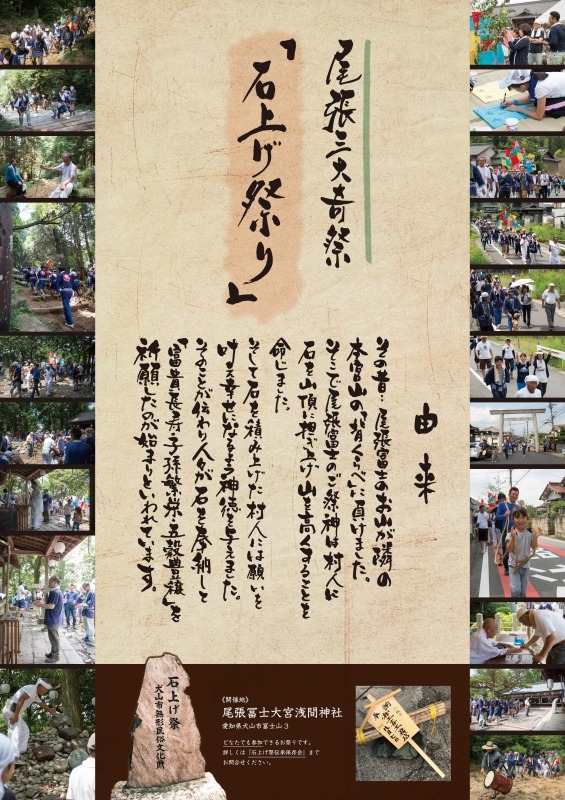 尾張三大奇祭
「石上げ祭り」
由来
その昔…尾張富士のお山が隣の
本宮山の「背くらべ」に負けました。
そこで尾張富士のご祭神は村人に
石を山頂に担ぎ上げ山を高くすることを
命じました。
そして石を積み上げた村人には願いを
叶え幸せになるよう神徳を与えました。
そのことが伝わり人々が石を奉納して
「富貴長寿・子孫繁栄・五穀豊穣」を
祈願したのが始まりといわれています。
石上げ祭
犬山市無形民俗文化財
《開催地》
尾張冨士大宮浅間神社
愛知県犬山市富士山3
どなたでも参加できるお祭りです。
詳しくは『石上げ祭伝承保存会』まで
お問合せください。